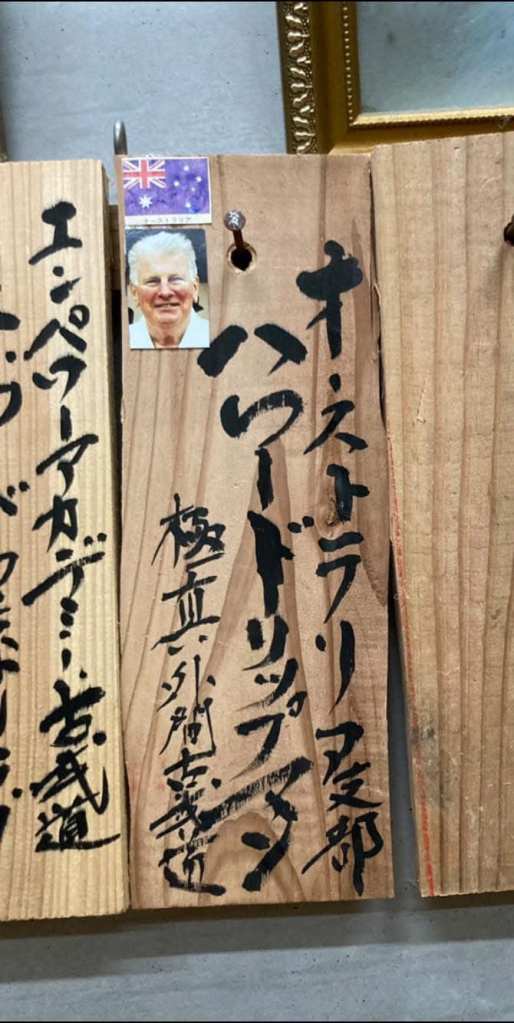 オーストラリア支部
ハワードリップマン
極真外間古武道
オーストラリア
エンペワーアカデミー古武道